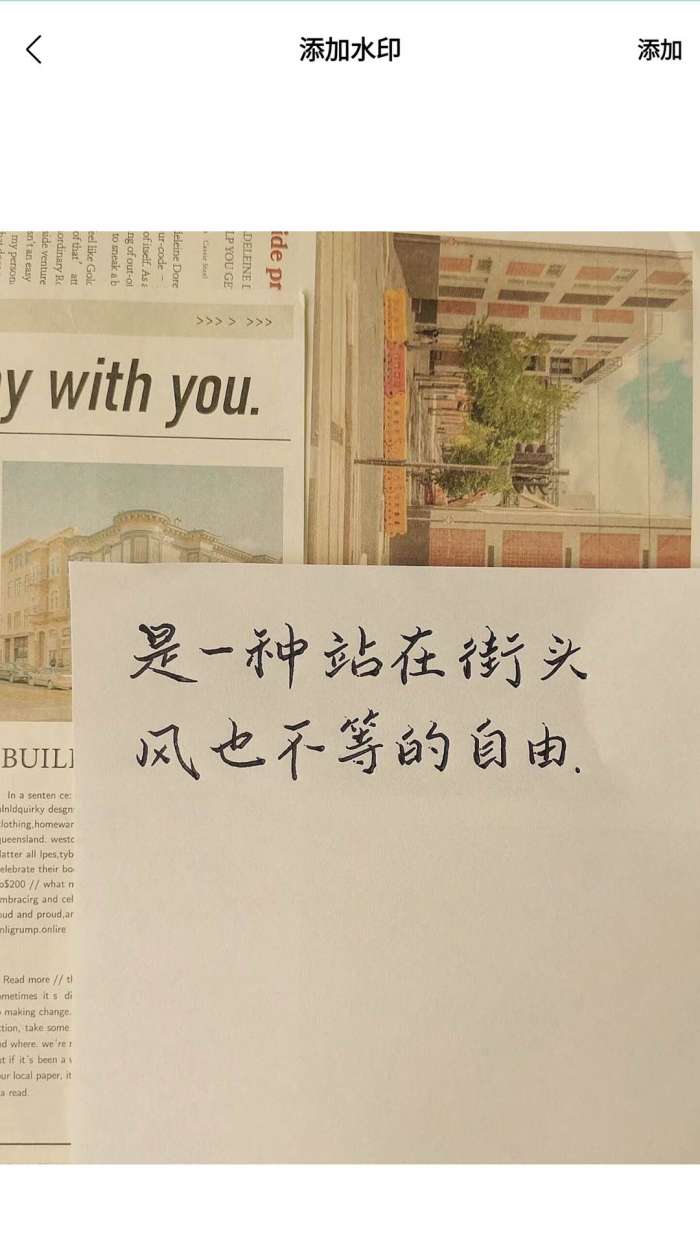 添加水印
添加
ide pr
>>>> >>>
y with you.
是一种站在街头
风也不等的自由.
BUIL
In a senten ce:
lnldquirky desgn
lothing,homewar
ueensland. westc
latter all lpes,tyb
elebrate their bo
o$200 // what n
mbracirg and cel
oud and proud,ar
nligrump.onlire
Read more // tl
ometimes it s di
making change.
ction, take some
nd where. we're r
t if it's been a v
ur local paper, it
a read.